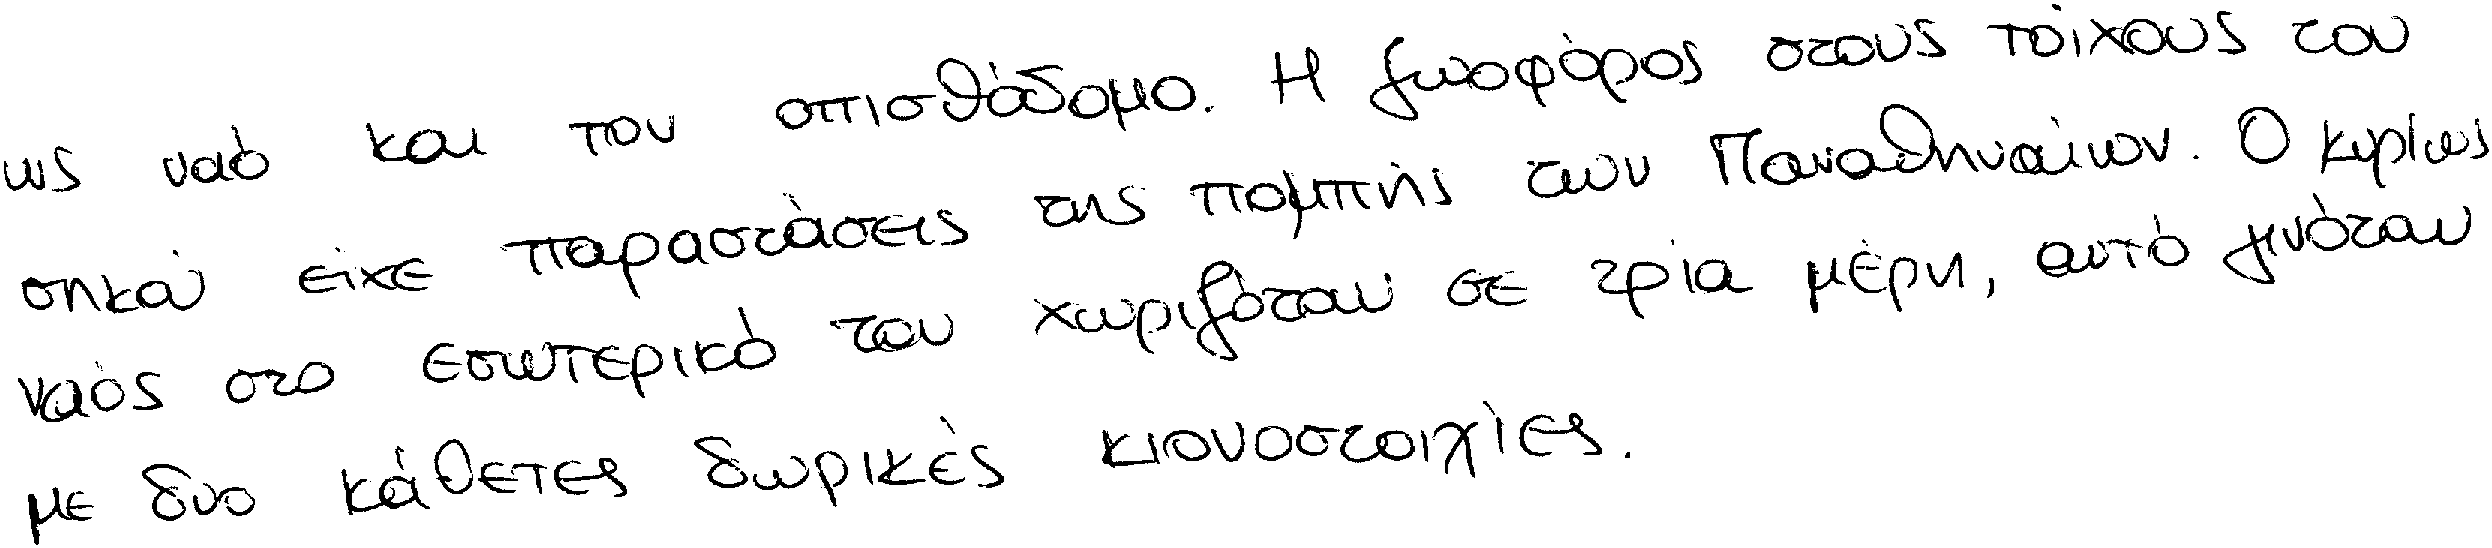 ως ναό και τον οπισθόδομο. Η ζωοφόρος στους τοίχους του
σηκού είχε παραστάσεις της πομπής των Παναθηναίων. Ο κυρίως
ναός στο εσωτερικό του χωριζόταν σε τρία μέρη, αυτό γινόταν
με δυο κάθετες δωρικές κιονοστοιχίες.